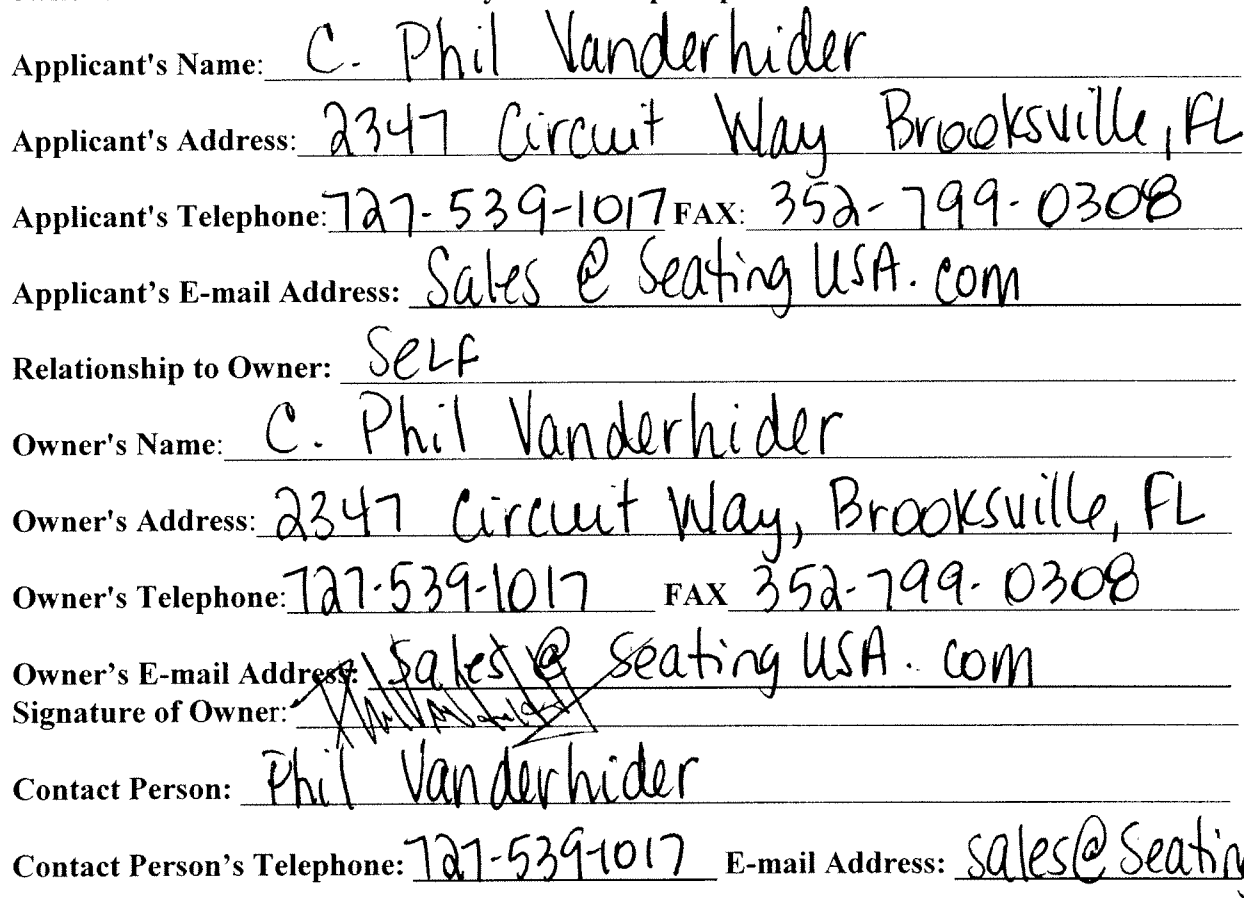 Applicant's Name: C. Phil Vanderhider
Applicant's Address: 2347 Circuit Way Brooksville, FL
Applicant's Telephone: 727-539-1017 FAX: 352-799-0308
Applicant's E-mail Address: Sales @ Seating USA. com
Relationship to Owner: SELF
Owner's Name: C. Phil Vanderhider
Owner's Address: 2347 Circuit Way, Brooksville, FL
Owner's Telephone: 727-539-1017 FAX 352-799-0308
Owner's E-mail Address: Sales @ Seating USA. com
Signature of Owner:
Contact Person: Phil Vanderhider
Contact Person's Telephone: 727-539-1017 E-mail Address: Sales@ Seatin